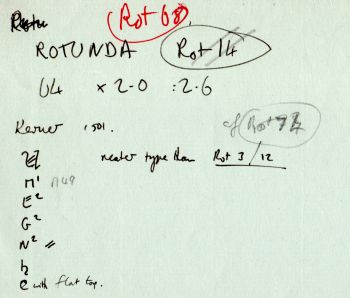 Rot 68
ROTUNDA Rot 14
64 x 2.0 : 2.6
Kerner 1501.
cf Rot 72
neater type than Rot 3/12
M¹ M49
E²
G²
N² =
h
e with flat top.